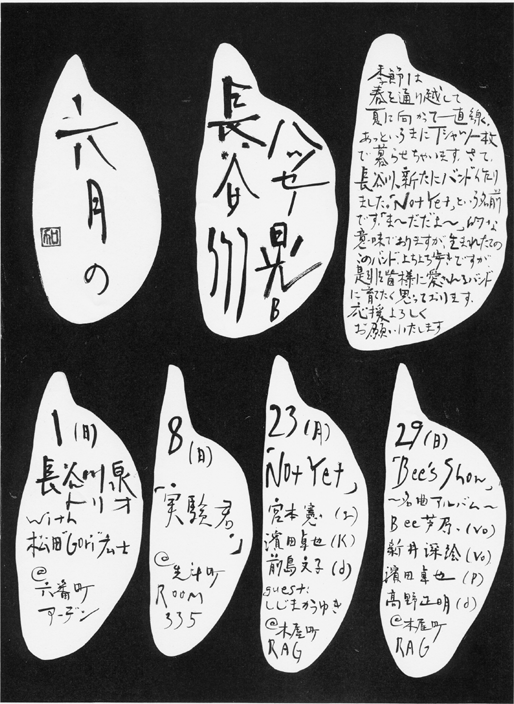 六月の
ハッセー
長谷川晃
B
季節は
春を通り越して
夏に向かって一直線、
あっというまにTシャツ一枚
で暮らせちゃいます。さて、
長谷川、新たにバンドつくり
ました。「Not Yet」という名前
です。"ま〜だだよ〜"的な
意味でありますが、生まれたての
このバンド、よちよち歩きですが
是非皆様に愛されるバンド
に育てたく思っております。
応援よろしく
お願いいたします
1(日)
長谷川泉
トリオ
with
松田"Gori"
@
六番町
アーデン
8
(日)
「実験君。」
@
先斗町
ROOM
335
23(月)
「Not Yet」
宮本憲
濱田卓也(K)
前島文子(d)
guest:
しじまかつゆき
@木屋町
RAG
29(日)
「Bee's Show」
〜名曲アルバム〜
Bee芦原(vo)
新井深絵(vo)
濱田卓也(P)
高野正明(d)
@木屋町
RAG